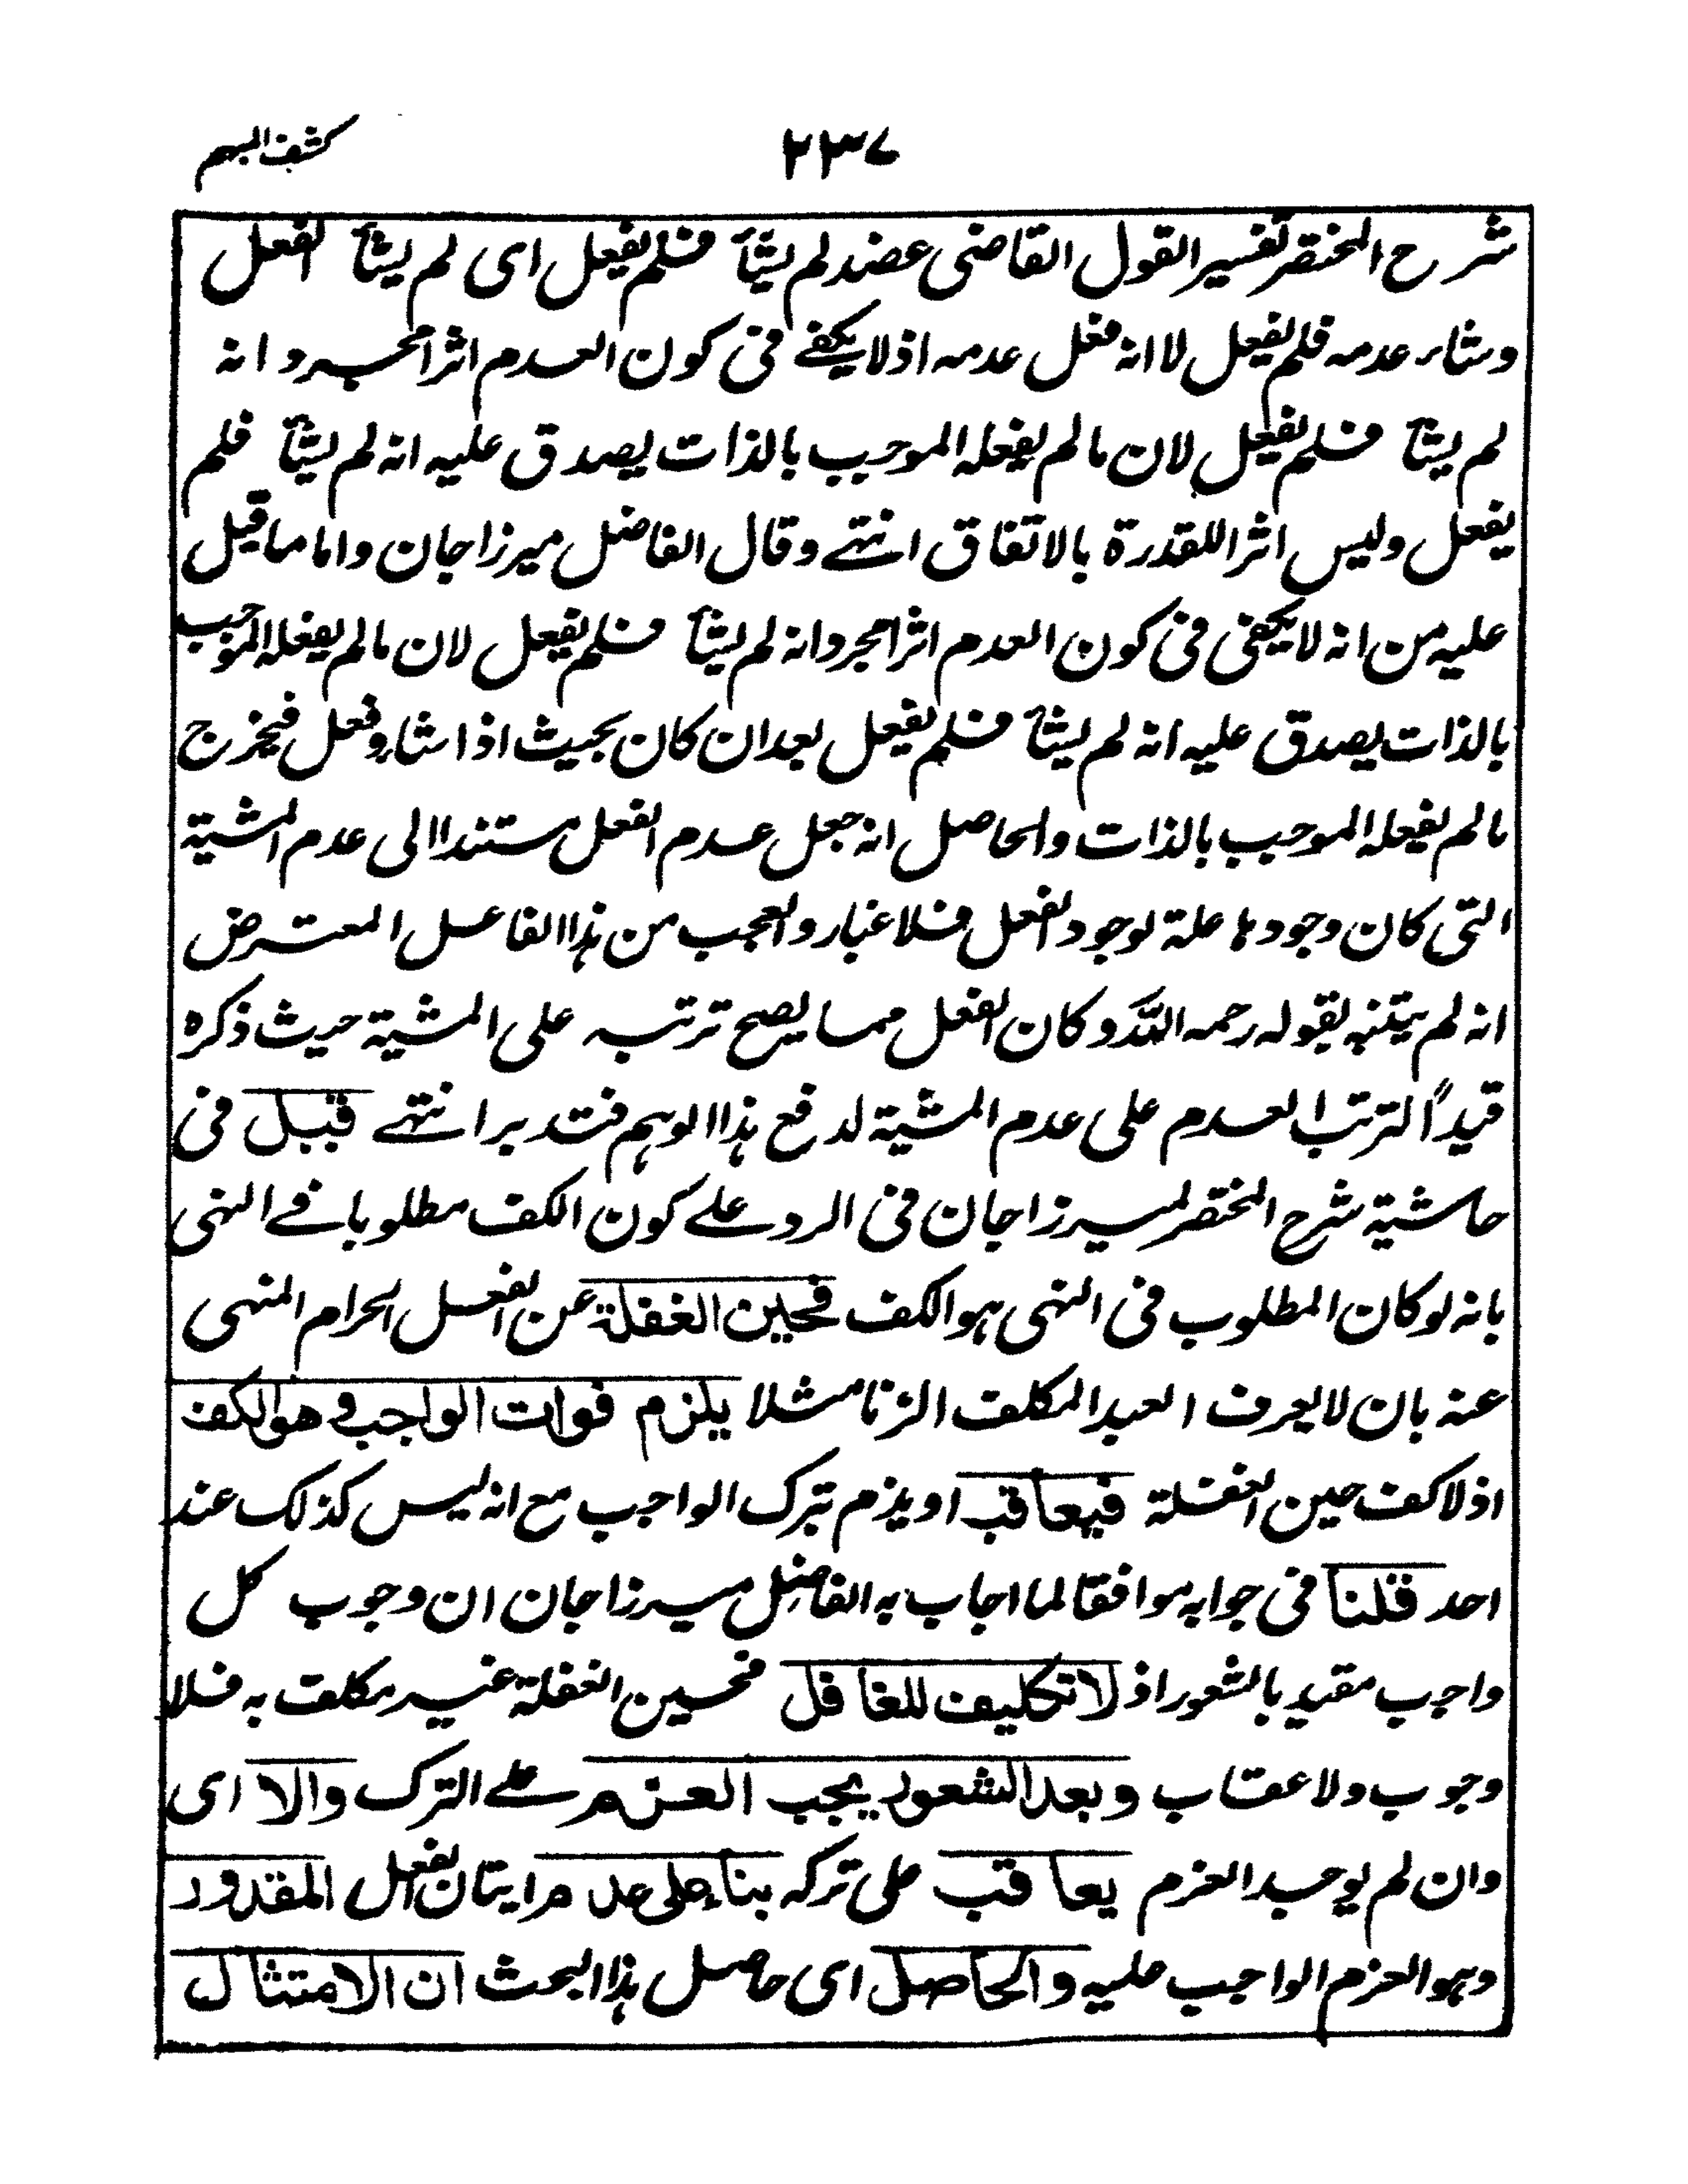 كشف المبهم
٢٣٧
شرح المختصر تفسير القول القاضى عضد لم يشأ فلم يفعل اى لم يشأ الفعل
وشاء عدمه فلم يفعل لا انه فعل عدمه اذ لا يكفے فى كون العدم اثرا مجرد انه
لم يشأ فلم يفعل لان ما لم يفعله الموجب بالذات يصدق عليه انه لم يشأ فلم
يفعل وليس اثرا للقدرة بالاتفاق انتهے وقال الفاضل ميرزا جان واما ما قيل
عليه من انه لا يكفى فى كون العدم اثرا مجرد انه لم يشأ فلم يفعل لان ما لم يفعله الموجب
بالذات يصدق عليه انه لم يشأ فلم يفعل بعد ان كان بحيث اذا شاء فعل فيخرج
ما لم يفعله الموجب بالذات والحاصل انه جعل عدم الفعل مستندا الى عدم المشية
التى كان وجودها علة لوجود الفعل فلا غبار والعجب من هذا الفاعل المعترض
انه لم يتنبه بقوله رحمه الله وكان الفعل مما يصح ترتبه على المشية حيث ذكره
قيداً لترتب العدم على عدم المشية لدفع هذا الوهم فتدبر انتهے قيل فى
حاشية شرح المختصر لميرزا جان فى الرد علے كون الكف مطلوبا فے النهى
بانه لو كان المطلوب فى النهى هو الكف فحين الغفلة عن الفعل الحرام المنهى
عنه بان لا يعرف العبد المكلف الزنا مثلا يلزم فوات الواجب و هو الكف
اذ لا كف حين الغفلة فيعاقب او يذم بترك الواجب مع انه ليس كذلك عند
احد قلنا فى جوابه موافقا لما اجاب به الفاضل ميرزا جان ان وجوب كل
واجب مقيد بالشعور اذ لا تكليف للغافل فحين الغفلة غير مكلف به فلا
وجوب ولا عقاب وبعد الشعور يجب العزم علے الترك والا اى
وان لم يوجد العزم يعاقب على تركه بناء على عدم ايتان الفعل المقدور
وهو العزم الواجب عليه والحاصل اى حاصل هذا البحث ان الامتثال